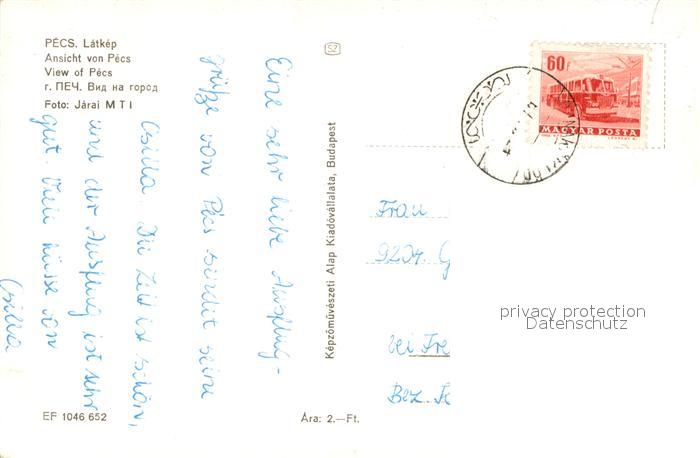 PÉCS. Látkép
Ansicht von Pécs
View of Pécs
г. ПЕЧ. Вид на город
Foto: Járai MTI
Eine sehr liebe Ausflug-
grüße von Pécs sendet seine
Csilla. Die Zeit ist schön,
und der Ausflug ist sehr
gut. Viele küsse von
Csilla
EF 1046 652
SZ
Képzőművészeti Alap Kiadóvállalata, Budapest
Ára: 2.—Ft.
60f
MAGYAR POSTA
Frau
9204. G
bei Fre
Bez. K
privacy protection
Datenschutz